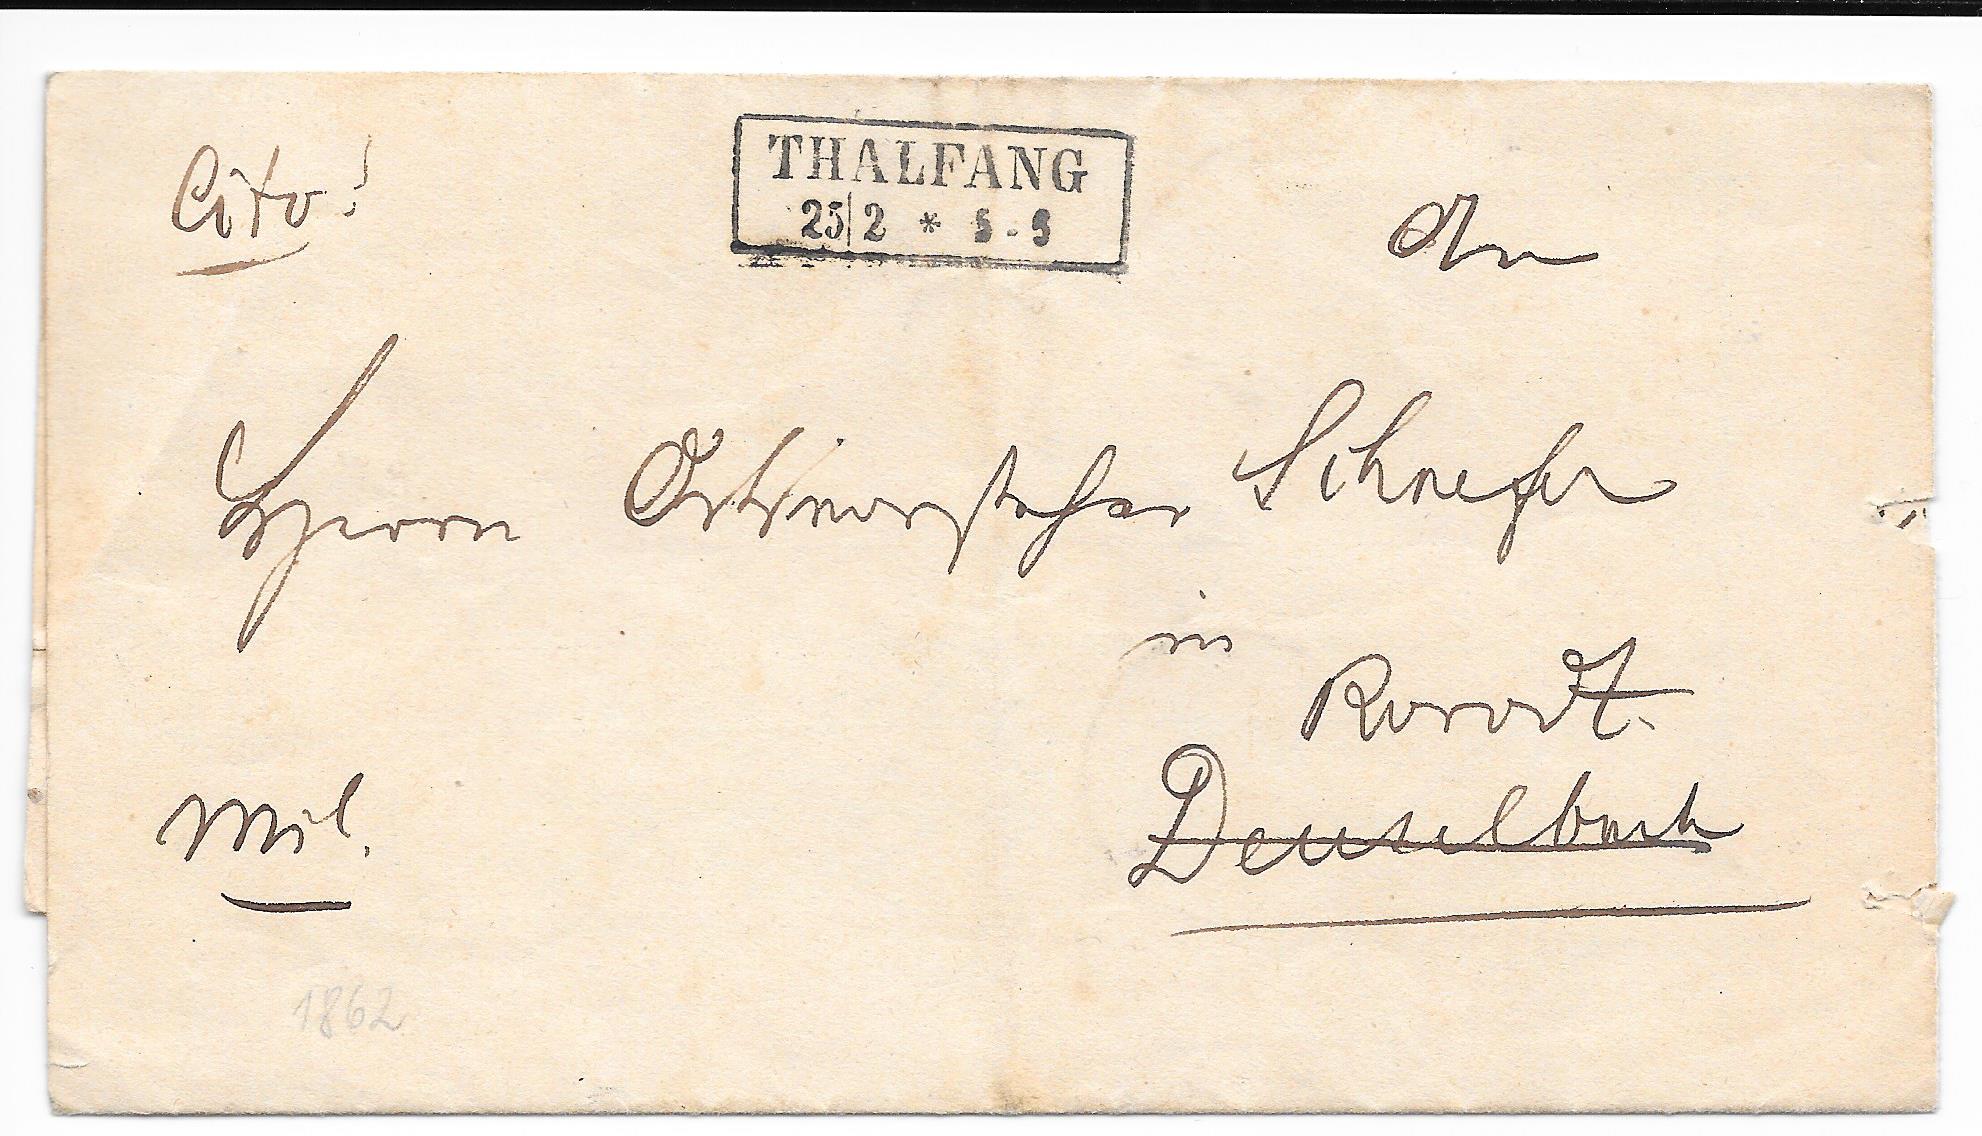 Cito!
THALFANG
25|2 * 5-5
An
Herrn Ortsvorsteher Schaefer
in
Rorodt.
Deuselbach
Mil.
1862